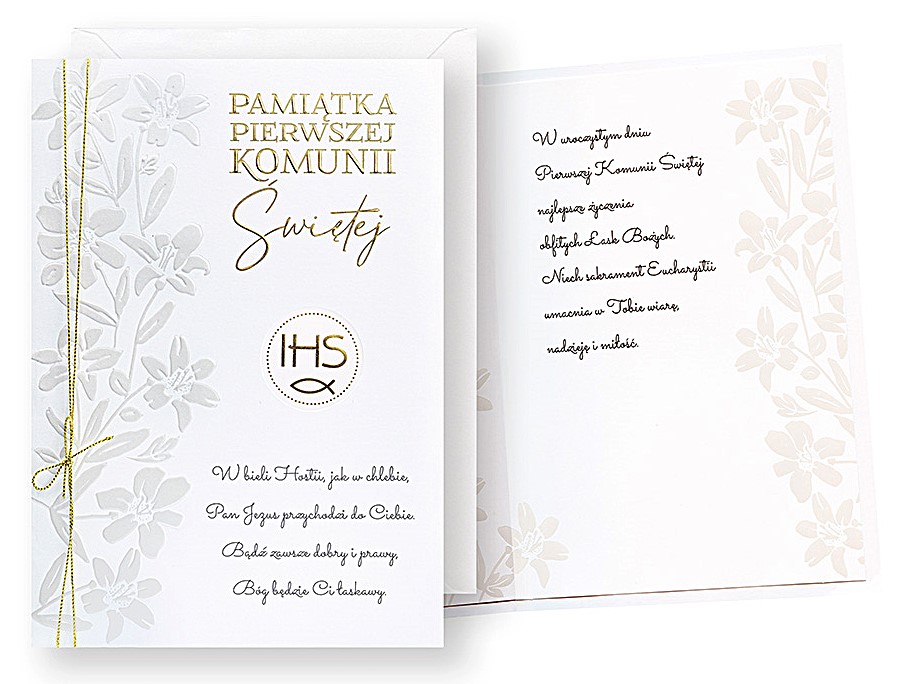 PAMIĄTKA
PIERWSZEJ
KOMUNII
Świętej
IHS
W bieli Hostii, jak w chlebie,
Pan Jezus przychodzi do Ciebie.
Bądź zawsze dobry i prawy,
Bóg będzie Ci łaskawy.
W uroczystym dniu
Pierwszej Komunii Świętej
najlepsze życzenia
obfitych Łask Bożych.
Niech sakrament Eucharystii
umacnia w Tobie wiarę,
nadzieję i miłość.